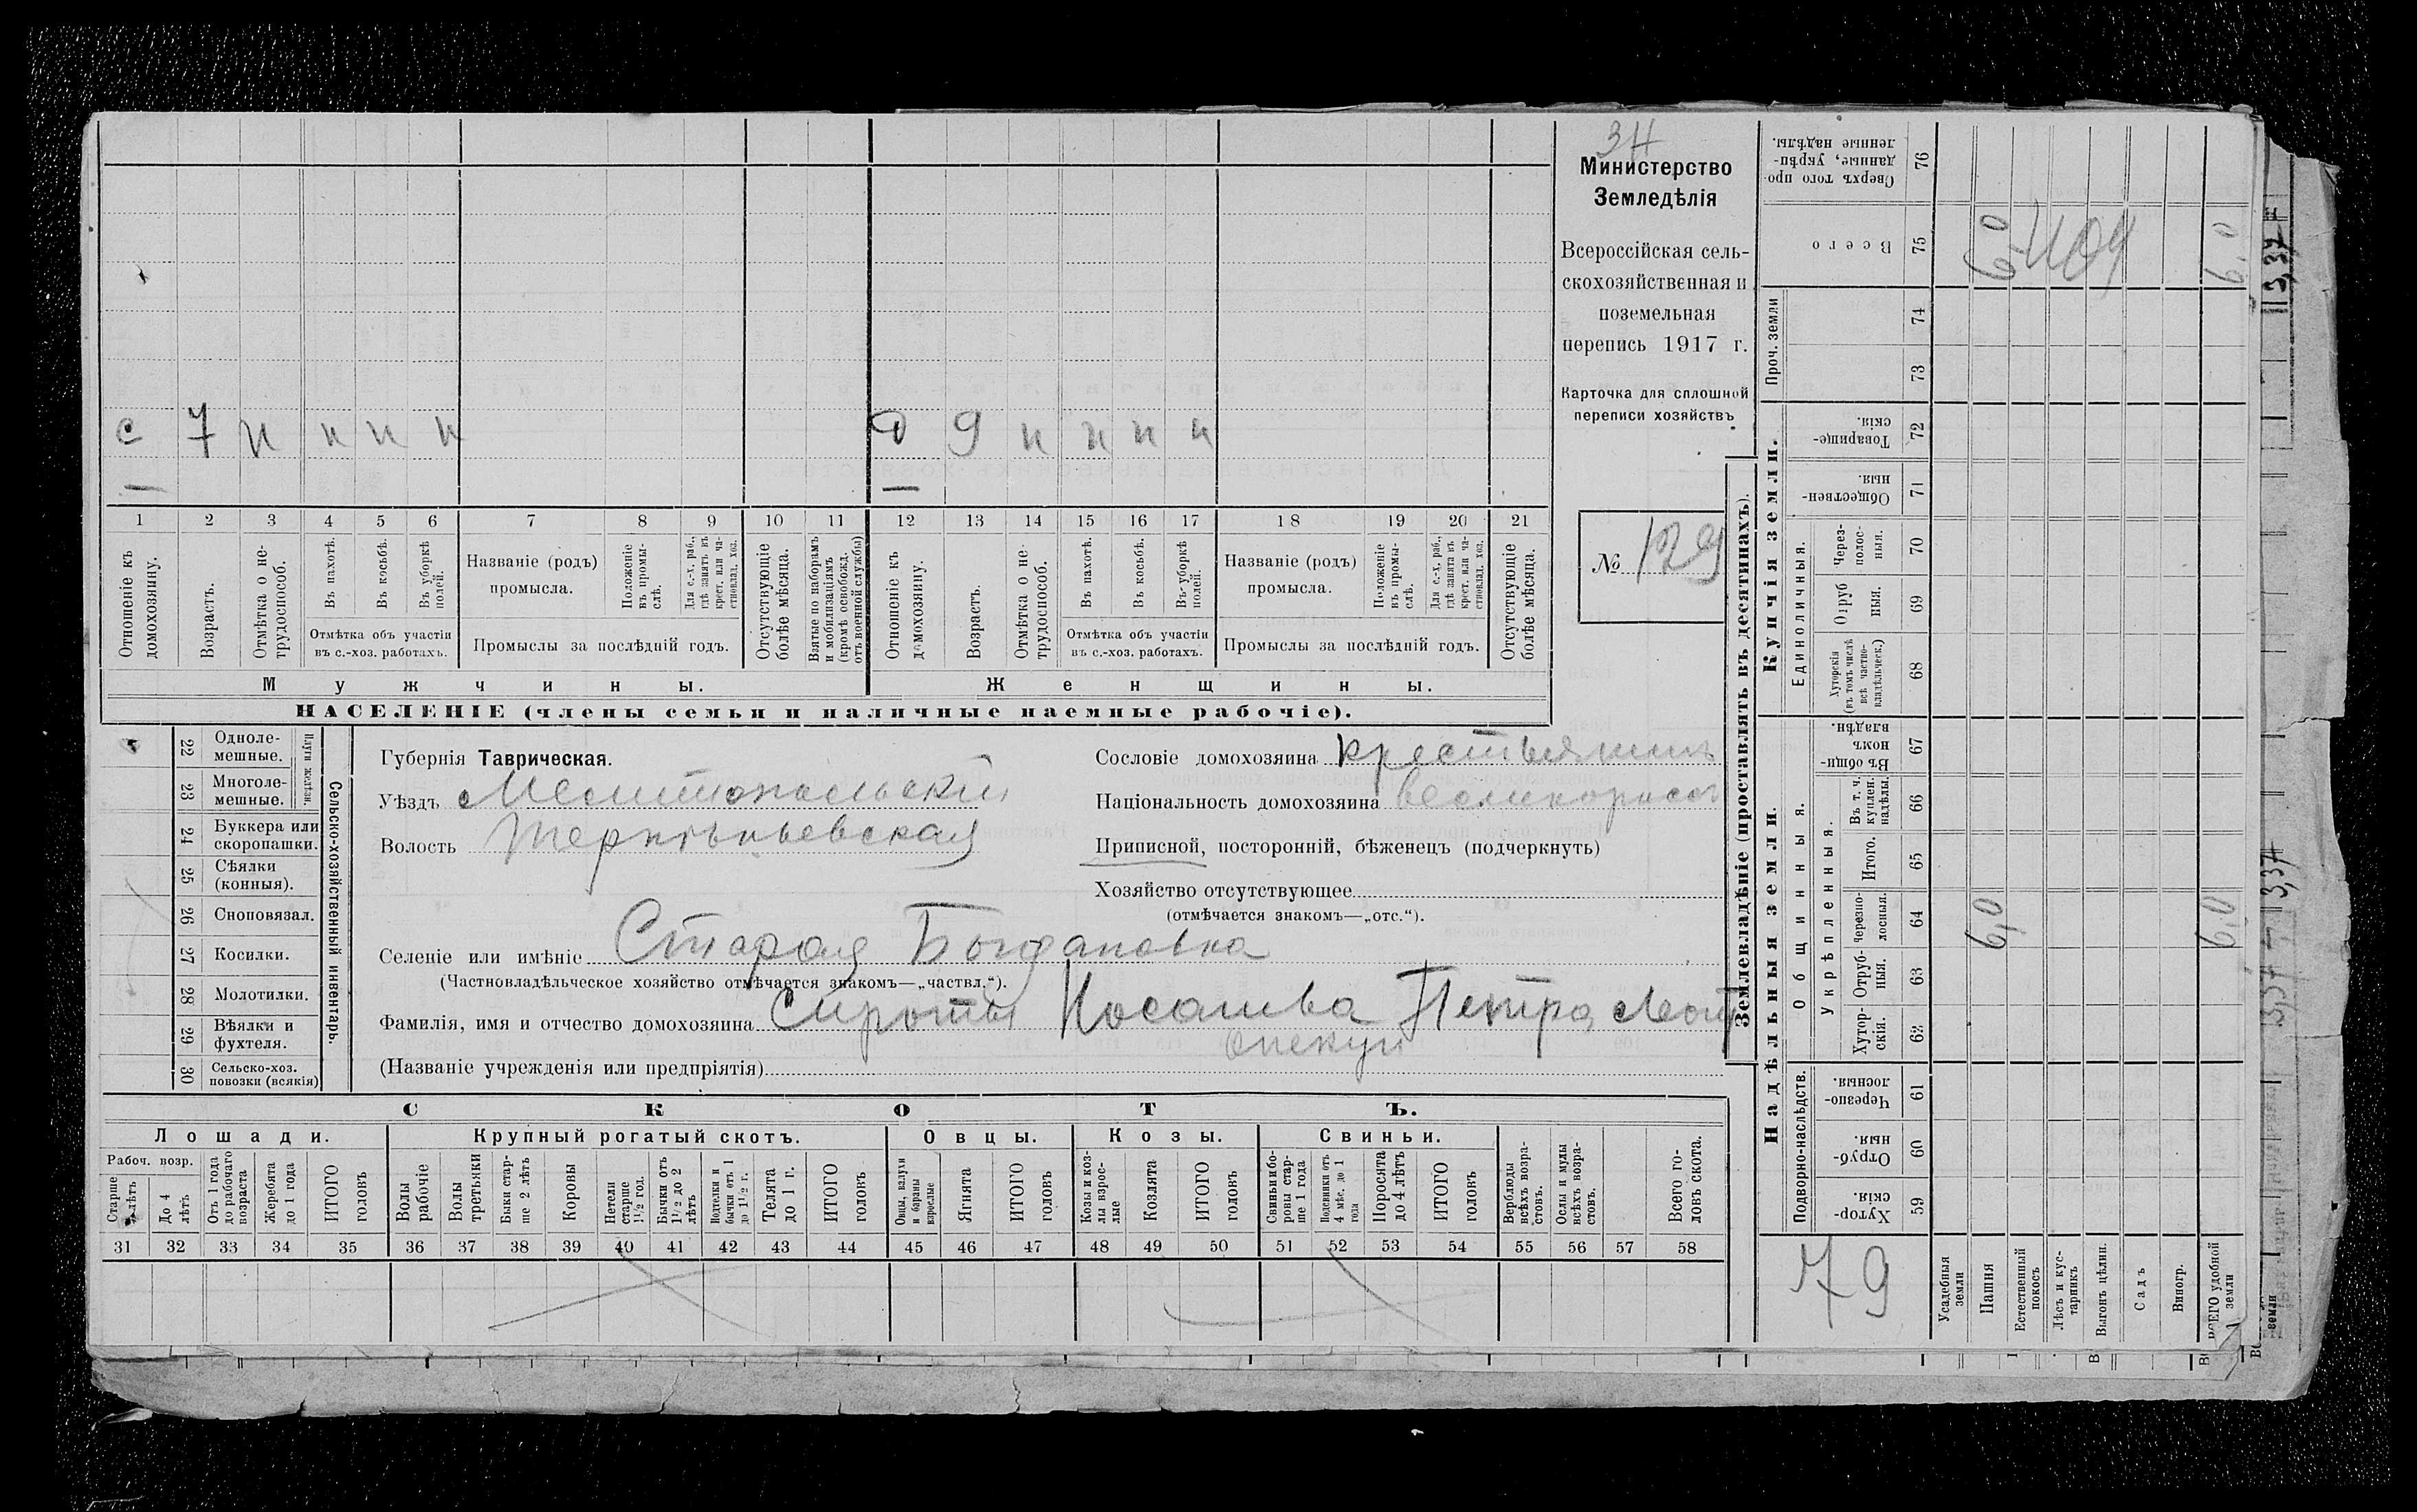 ЗН
Министерство
Земледѣлія
Всероссійская сель-
скохозяйственная и
поземельная
перепись 1917 г.
Карточка для сплошной
переписи хозяйствъ
№ 129
с 7 н н н н
д 9 н н н н
— —
1 2 3 4 5 6 7 8 9 10 11 12 13 14 15 16 17 18 19 20 21
Отношеніе къ
домохозяину.
Возрастъ.
Отмѣтка о не-
трудоспособ.
Въ пахотѣ.
Въ косьбѣ.
Въ уборкѣ
полей.
Отмѣтка объ участіи
въ с.-хоз. работахъ.
Названіе (родъ)
промысла.
Положеніе
въ промы-
слѣ.
Для с.-х. раб.,
гдѣ занятъ въ
крест. или ча-
стновлад. хоз.
Промыслы за послѣдній годъ.
Отсутствующіе
болѣе мѣсяца.
Взятые по наборамъ
и мобилизаціямъ
(кромѣ освобожд.
отъ военной службы)
Отношеніе къ
домохозяину.
Возрастъ.
Отмѣтка о не-
трудоспособ.
Въ пахотѣ.
Въ косьбѣ.
Въ уборкѣ
полей.
Отмѣтка объ участіи
въ с.-хоз. работахъ.
Названіе (родъ)
промысла.
Положеніе
въ промы-
слѣ.
Для с.-х. раб.,
гдѣ занята въ
крест. или ча-
стновлад. хоз.
Промыслы за послѣдній годъ.
Отсутствующіе
болѣе мѣсяца.
Мужчины.
Женщины.
НАСЕЛЕНІЕ (члены семьи и наличные наемные рабочіе).
22 Одноле-
мешные.
23 Многоле-
мешные.
Плуги желѣзн.
24 Буккера или
скоропашки.
25 Сѣялки
(конныя).
26 Сноповязал.
27 Косилки.
28 Молотилки.
29 Вѣялки и
фухтеля.
30 Сельско-хоз.
повозки (всякія)
Сельско-хозяйственный инвентарь.
Губернія Таврическая.
Уѣздъ Мелитопольскій
Волость Терпѣньевская
Сословіе домохозяина крестьянинъ
Національность домохозяина великороссъ
Приписной, посторонній, бѣженецъ (подчеркнуть)
Хозяйство отсутствующее
(отмѣчается знакомъ—„отс.“).
Селеніе или имѣніе Старая Богдановка
(Частновладѣльческое хозяйство отмѣчается знакомъ—„частвл.“).
Фамилія, имя и отчество домохозяина Сироты Носачева Петра
опекун
(Названіе учрежденія или предпріятія)
СКОТЪ.
Лошади.
Крупный рогатый скотъ.
Овцы.
Козы.
Свиньи.
Рабоч. возр.
Старше
4 лѣтъ
До 4
лѣтъ
Отъ 1 года
до рабочаго
возраста
Жеребята
до 1 года
ИТОГО
головъ
Волы
рабочіе
Волы
третьяки
Быки стар-
ше 2 лѣтъ
Коровы
Нетели
старше
1½ год.
Бычки отъ
1½ до 2
лѣтъ
Подтелки и
бычки отъ 1
до 1½ г.
Телята
до 1 г.
ИТОГО
головъ
Овцы, валухи
и бараны
взрослые
Ягнята
ИТОГО
головъ
Козы и коз-
лы взрос-
лые
Козлята
ИТОГО
головъ
Свиньи и бо-
ровы стар-
ше 1 года
Подсвинки отъ
4 мѣс. до 1
года
Поросята
до 4 лѣтъ
ИТОГО
головъ
Верблюды
всѣхъ возра-
стовъ.
Ослы и мулы
всѣхъ возра-
стовъ.
Всего го-
ловъ скота.
31 32 33 34 35 36 37 38 39 40 41 42 43 44 45 46 47 48 49 50 51 52 53 54 55 56 57 58
Землевладѣніе (проставлять въ десятинахъ).
Купчія земли.
Надѣльныя земли.
Сверхъ того про-
данные, укрѣп-
ленные надѣлы.
76
Всего
75
6,0
409
6,0
Проч. земли
74
73
Товарище-
скія.
72
Обществен-
ныя.
71
Единоличныя.
Через-
полос-
ныя.
70
Отруб
ныя.
69
Хуторскія
(въ томъ числѣ
всѣ частно-
владѣльческ.)
68
Общинныя.
Въ общи-
номъ
владѣн.
67
Укрѣпленныя.
Въ т. ч.
куплен.
надѣлы.
66
Итого.
65
Черезпо-
лосныя.
64
6,0
6,0
Отруб-
ныя.
63
Хутор-
скія.
62
Подворно-наслѣдств.
Черезпо-
лосныя.
61
Отруб-
ныя.
60
Хутор-
скія.
59
79
Усадебныя
земли
Пашня
Естественный
покосъ
Лѣсъ и кус-
тарникъ
Выгонъ цѣлин.
Садъ
Виногр.
ВСЕГО удобной
земли
3,37
3,37
земли